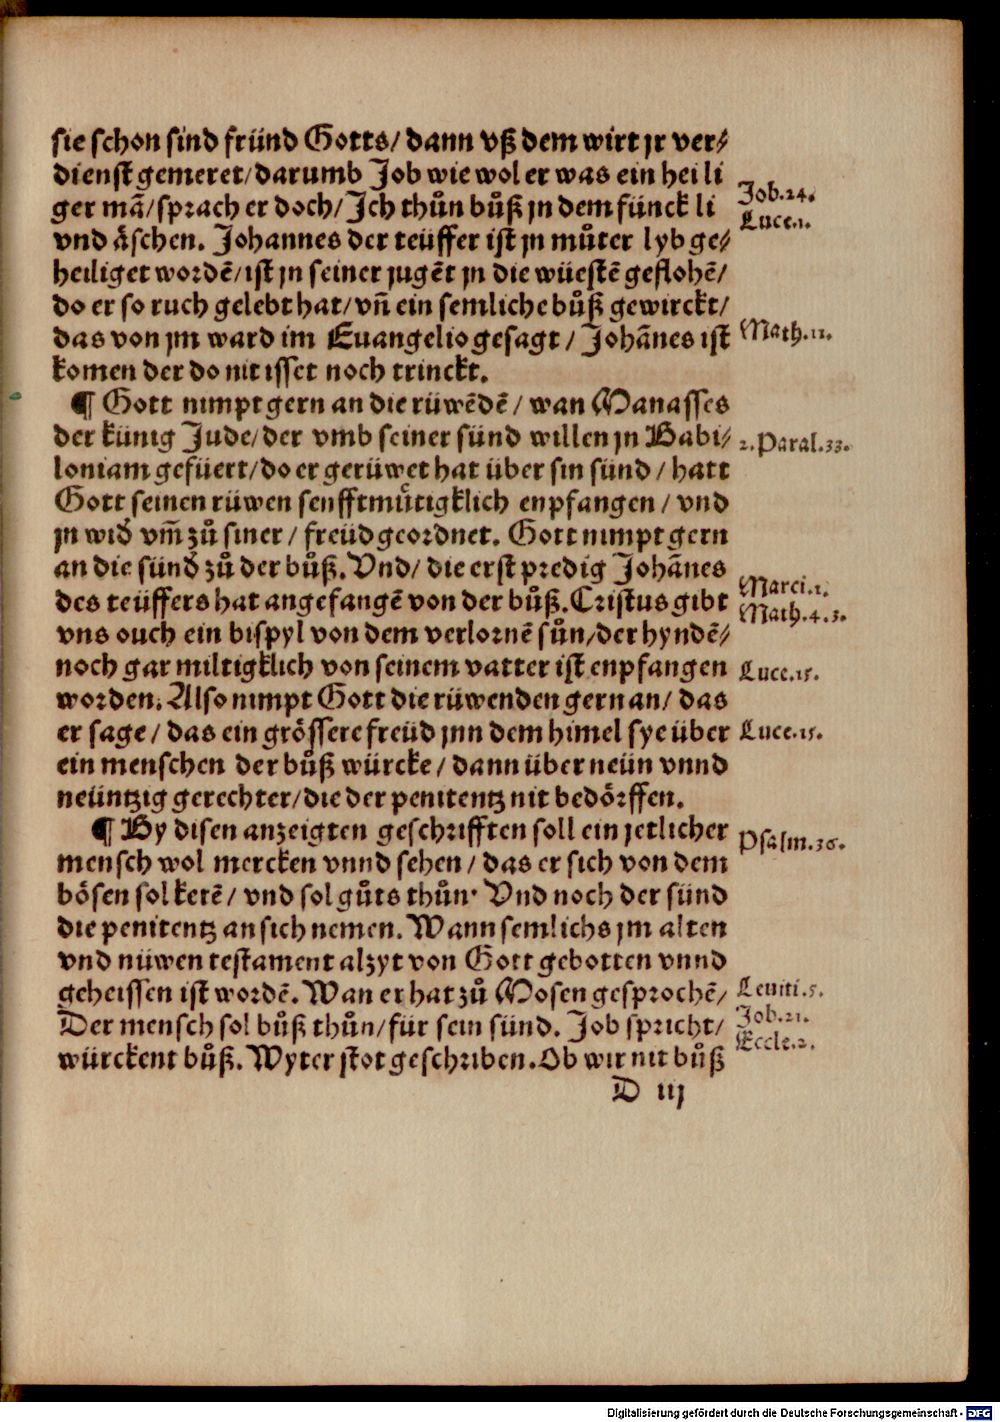 sie schon sind fründ Gotts/ dann vß dem wirt jr ver⸗
dienst gemeret/ darumb Job wie wol er was ein hei li
ger mã/ sprach er doch/ Ich thůn bůß jn dem fünck li
vnd äschen. Johannes der teüffer ist jn můter lyb ge⸗
heiliget wordẽ/ ist jn seiner jugẽt jn die wüestẽ geflohẽ/
do er so ruch gelebt hat/ vñ ein semliche bůß gewirckt/
das von jm ward im Euangelio gesagt / Johãnes ist
komen der do nit isset noch trinckt.
¶ Gott nimpt gern an die rüwẽdẽ / wan Manasses
der künig Jude/ der vmb seiner sünd willen jn Babi⸗
loniam gefüert/ do er gerüwet hat über sin sünd / hatt
Gott seinen rüwen senfftmůtigklich enpfangen / vnd
jn wid̓ vm̃ zů siner / freüd geordnet. Gott nimpt gern
an die sünd̓ zů der bůß. Vnd/ die erst predig Johãnes
des teüffers hat angefangẽ von der bůß. Cristus gibt
vns ouch ein bispyl von dem verlornẽ sůn/ der hyndẽ⸗
noch gar miltigklich von seinem vatter ist enpfangen
worden. Also nimpt Gott die rüwenden gern an/ das
er sage / das ein grössere freüd jnn dem himel sye über
ein menschen der bůß würcke / dann über neün vnnd
neüntzig gerechter/ die der penitentz nit bedörffen.
¶ By disen anzeigten geschrifften soll ein jetlicher
mensch wol mercken vnnd sehen / das er sich von dem
bösen sol kerẽ / vnd sol gůts thůn. Vnd noch der sünd
die penitentz an sich nemen. Wann semlichs jm alten
vnd nüwen testament alzyt von Gott gebotten vnnd
geheissen ist wordẽ. Wan er hat zů Mosen gesprochẽ/
Der mensch sol bůß thůn/ für sein sünd. Job spricht/
würckent bůß. Wyter stot geschriben. Ob wir nit bůß
D iij
Job.24.
Luce.1.
Math.11.
2.Paral.33.
Marci.1.
Math.4.3.
Luce.15.
Luce.15.
Psalm.36.
Leuiti.5.
Job.21.
Eccle.2.
Digitalisierung gefördert durch die Deutsche Forschungsgemeinschaft - DFG